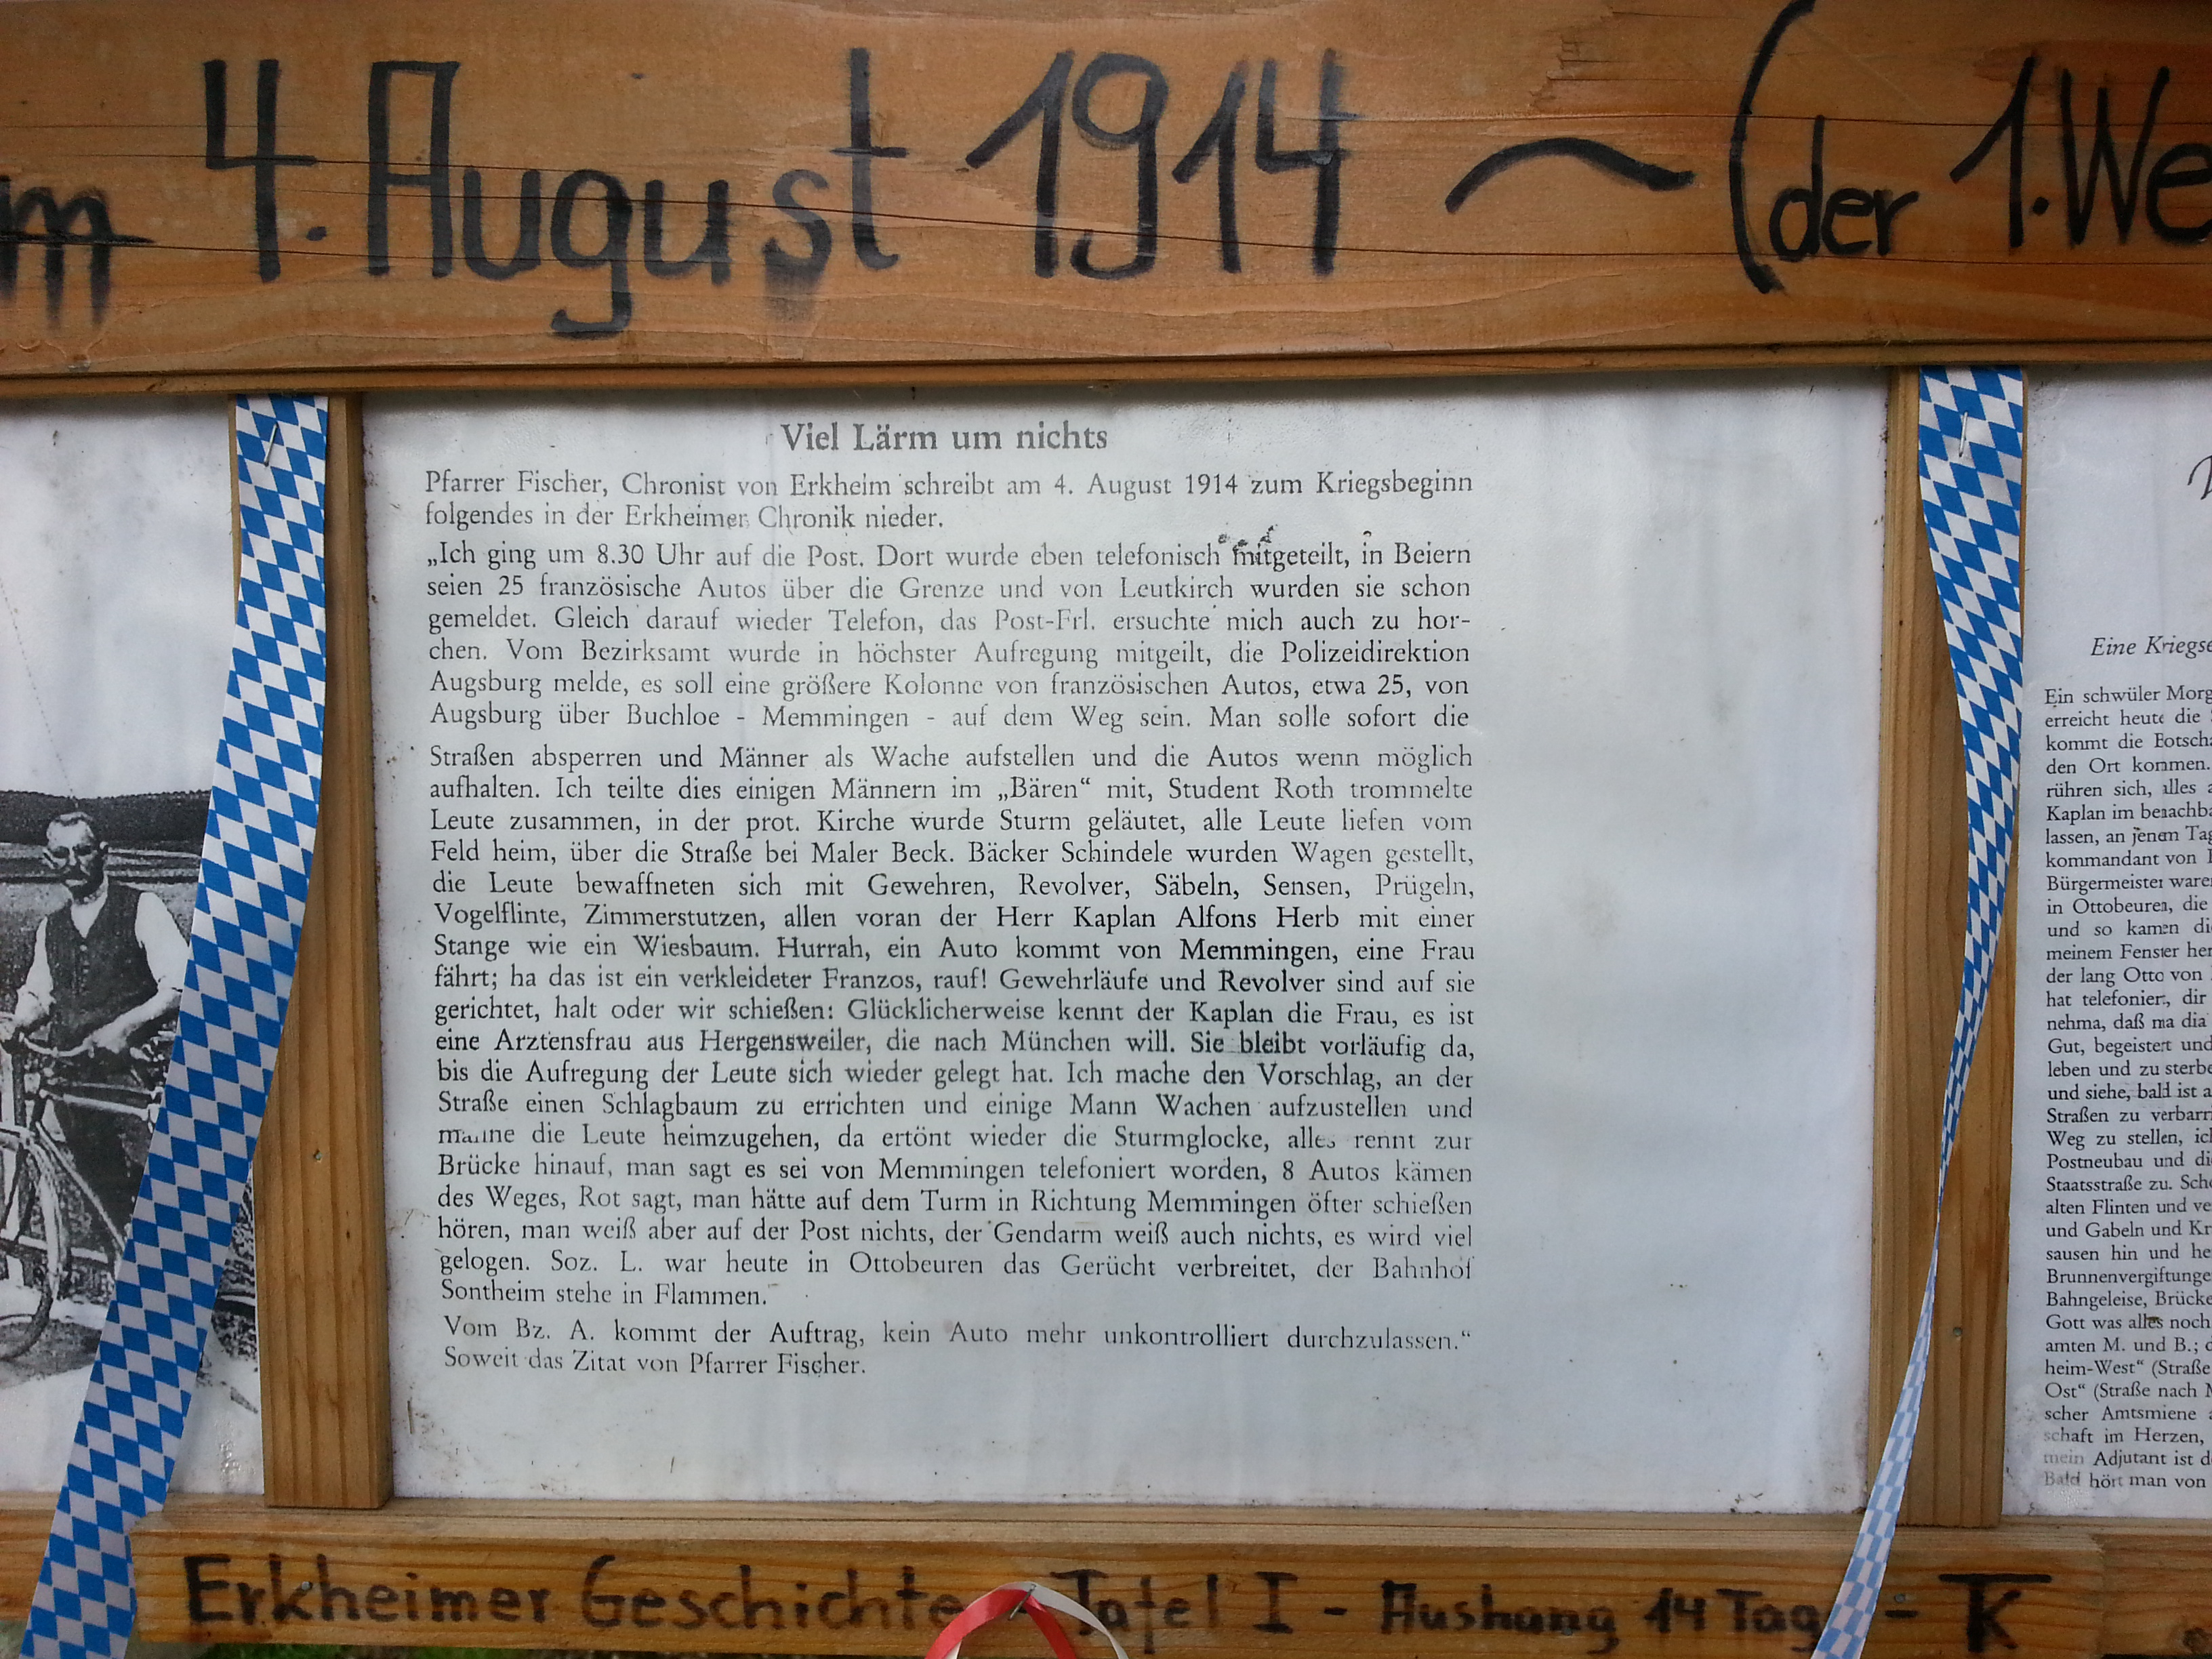 4. August 1914 ~ (der 1. We
Viel Lärm um nichts
Pfarrer Fischer, Chronist von Erkheim schreibt am 4. August 1914 zum Kriegsbeginn
folgendes in der Erkheimer Chronik nieder.
„Ich ging um 8.30 Uhr auf die Post. Dort wurde eben telefonisch mitgeteilt, in Beiern
seien 25 französische Autos über die Grenze und von Leutkirch wurden sie schon
gemeldet. Gleich darauf wieder Telefon, das Post-Frl. ersuchte mich auch zu hor-
chen. Vom Bezirksamt wurde in höchster Aufregung mitgeilt, die Polizeidirektion
Augsburg melde, es soll eine größere Kolonne von französischen Autos, etwa 25, von
Augsburg über Buchloe - Memmingen - auf dem Weg sein. Man solle sofort die
Straßen absperren und Männer als Wache aufstellen und die Autos wenn möglich
aufhalten. Ich teilte dies einigen Männern im „Bären“ mit, Student Roth trommelte
Leute zusammen, in der prot. Kirche wurde Sturm geläutet, alle Leute liefen vom
Feld heim, über die Straße bei Maler Beck. Bäcker Schindele wurden Wagen gestellt,
die Leute bewaffneten sich mit Gewehren, Revolver, Säbeln, Sensen, Prügeln,
Vogelflinte, Zimmerstutzen, allen voran der Herr Kaplan Alfons Herb mit einer
Stange wie ein Wiesbaum. Hurrah, ein Auto kommt von Memmingen, eine Frau
fährt; ha das ist ein verkleideter Franzos, rauf! Gewehrläufe und Revolver sind auf sie
gerichtet, halt oder wir schießen: Glücklicherweise kennt der Kaplan die Frau, es ist
eine Arztensfrau aus Hergensweiler, die nach München will. Sie bleibt vorläufig da,
bis die Aufregung der Leute sich wieder gelegt hat. Ich mache den Vorschlag, an der
Straße einen Schlagbaum zu errichten und einige Mann Wachen aufzustellen und
die Leute heimzugehen, da ertönt wieder die Sturmglocke, alles rennt zur
Brücke hinauf, man sagt es sei von Memmingen telefoniert worden, 8 Autos kämen
des Weges, Rot sagt, man hätte auf dem Turm in Richtung Memmingen öfter schießen
hören, man weiß aber auf der Post nichts, der Gendarm weiß auch nichts, es wird viel
gelogen. Soz. L. war heute in Ottobeuren das Gerücht verbreitet, der Bahnhof
Sontheim stehe in Flammen.
Vom Bz. A. kommt der Auftrag, kein Auto mehr unkontrolliert durchzulassen.“
Soweit das Zitat von Pfarrer Fischer.
Eine Kriegse
Ein schwüler Morg
erreicht heute die
kommt die Botscha
den Ort kommen.
rühren sich, alles a
Kaplan im benachba
lassen, an jenem Tag
kommandant von
Bürgermeister ware
in Ottobeuren, die
und so kamen di
meinem Fenster her
der lang Otto von
hat telefoniert, dir
nehma, daß ma dia
Gut, begeistert und
leben und zu sterbe
und siehe, bald ist a
Straßen zu verbarri
Weg zu stellen, ich
Postneubau und di
Staatsstraße zu. Scho
alten Flinten und ve
und Gabeln und Kr
sausen hin und he
Brunnenvergiftunge
Bahngeleise, Brücke
Gott was alles noch
amten M. und B.; d
heim-West“ (Straße
Ost“ (Straße nach M
scher Amtsmiene a
schaft im Herzen,
mein Adjutant ist d
Bald hört man von
Erkheimer Geschichte Tafel I - Aushang 14 Tag - TK